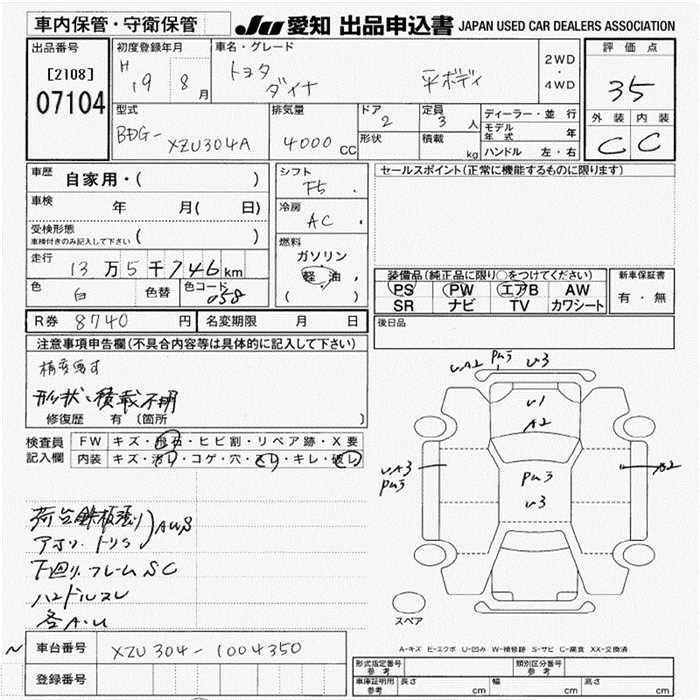 車内保管・守衛保管
JU 愛知 出品申込書 JAPAN USED CAR DEALERS ASSOCIATION
出品番号
[2108]
07104
初度登録年月
H 19 8月
車名・グレード
トヨタ
ダイナ 平ボディ
2WD
・
4WD
評価点
35
外装 内装
C C
型式
BDG-
XZU304A
排気量
4000 CC
ドア
2
定員
3 人
形状
積載
kg
ディーラー・並行
モデル年式 年
ハンドル 左・右
車歴
自家用・( )
車検
年 月( 日)
受検形態
車検付きのみ記入して下さい ( )
走行
13万5千746km
色
白
色替
色コード
058
シフト
F5
冷房
AC
燃料
ガソリン
軽油
( )
セールスポイント(正常に機能するものに限ります)
装備品(純正品に限り○をつけてください)
PS PW エアB AW
SR ナビ TV カワシート
新車保証書
有・無
後日品
R券 8740 円
名変期限 月 日
注意事項申告欄(不具合内容等は具体的に記入して下さい)
形状、積載不明
修復歴 有〔箇所 〕
検査員
記入欄
FW キズ・飛石・ヒビ割・リペア跡・X要
内装 キズ・汚レ・コゲ・穴・スレ・キレ・破レ
荷台鉄板張り
アオリ、トリS
AUS
下廻り、フレームSC
ハンドルスレ
各A.U
UA2
U3
U1
A2
U3
UA3
A2
スペア
A-キズ E-エクボ U-凹み W-補修跡 S-サビ C-腐食 XX-交換済
車台番号
XZU304-1004350
登録番号
形式指定番号
参考
類別区分番号
参考
車庫証明用
参考
長さ cm
幅 cm
高さ cm